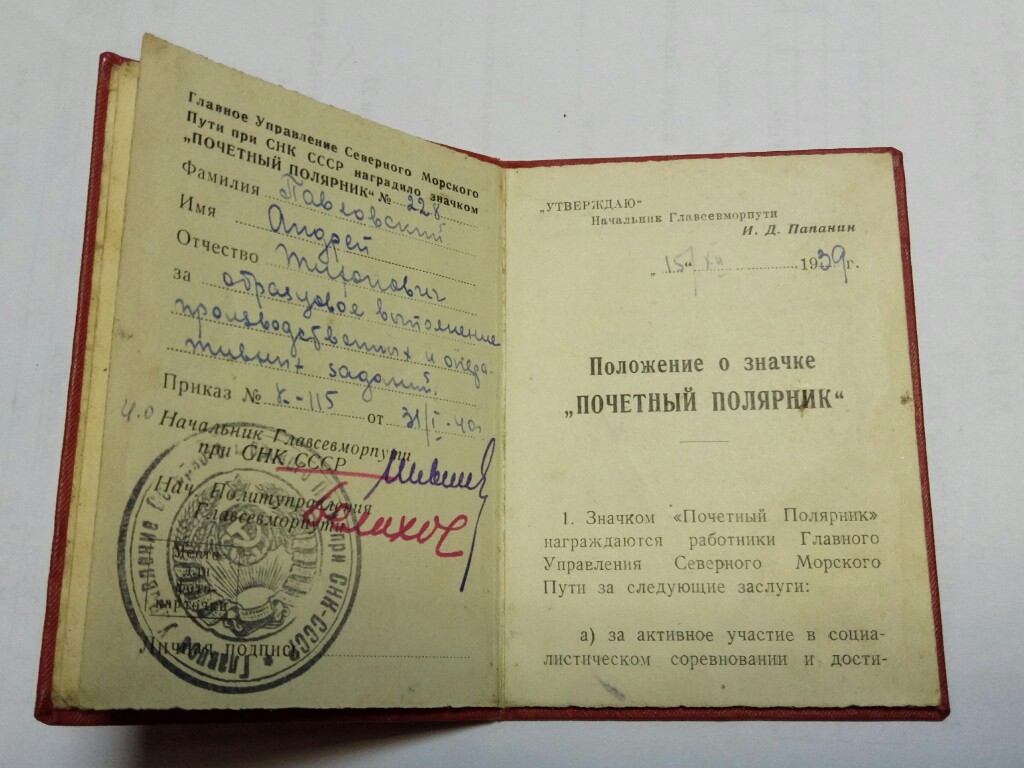 Главное Управление Северного Морского
Пути при СНК СССР наградило значком
„ПОЧЕТНЫЙ ПОЛЯРНИК“ № 228
Фамилия Павловский
Имя Андрей
Отчество Тихонович
за образцовое выполнение
производственных и опера-
тивных заданий.
Приказ № К-115 от 31/I-40г
Начальник Главсевморпути
при СНК СССР
Нач. Политуправления
Главсевморпути
Белахов
Место
для
фото-
карточки
Личная подпись
Главное Управление при СНК-СССР
„УТВЕРЖДАЮ“
Начальник Главсевморпути
И. Д. Папанин
„15“ XII 1939 г.
Положение о значке
„ПОЧЕТНЫЙ ПОЛЯРНИК“
1. Значком «Почетный Полярник»
награждаются работники Главного
Управления Северного Морского
Пути за следующие заслуги:
а) за активное участие в социа-
листическом соревновании и дости-